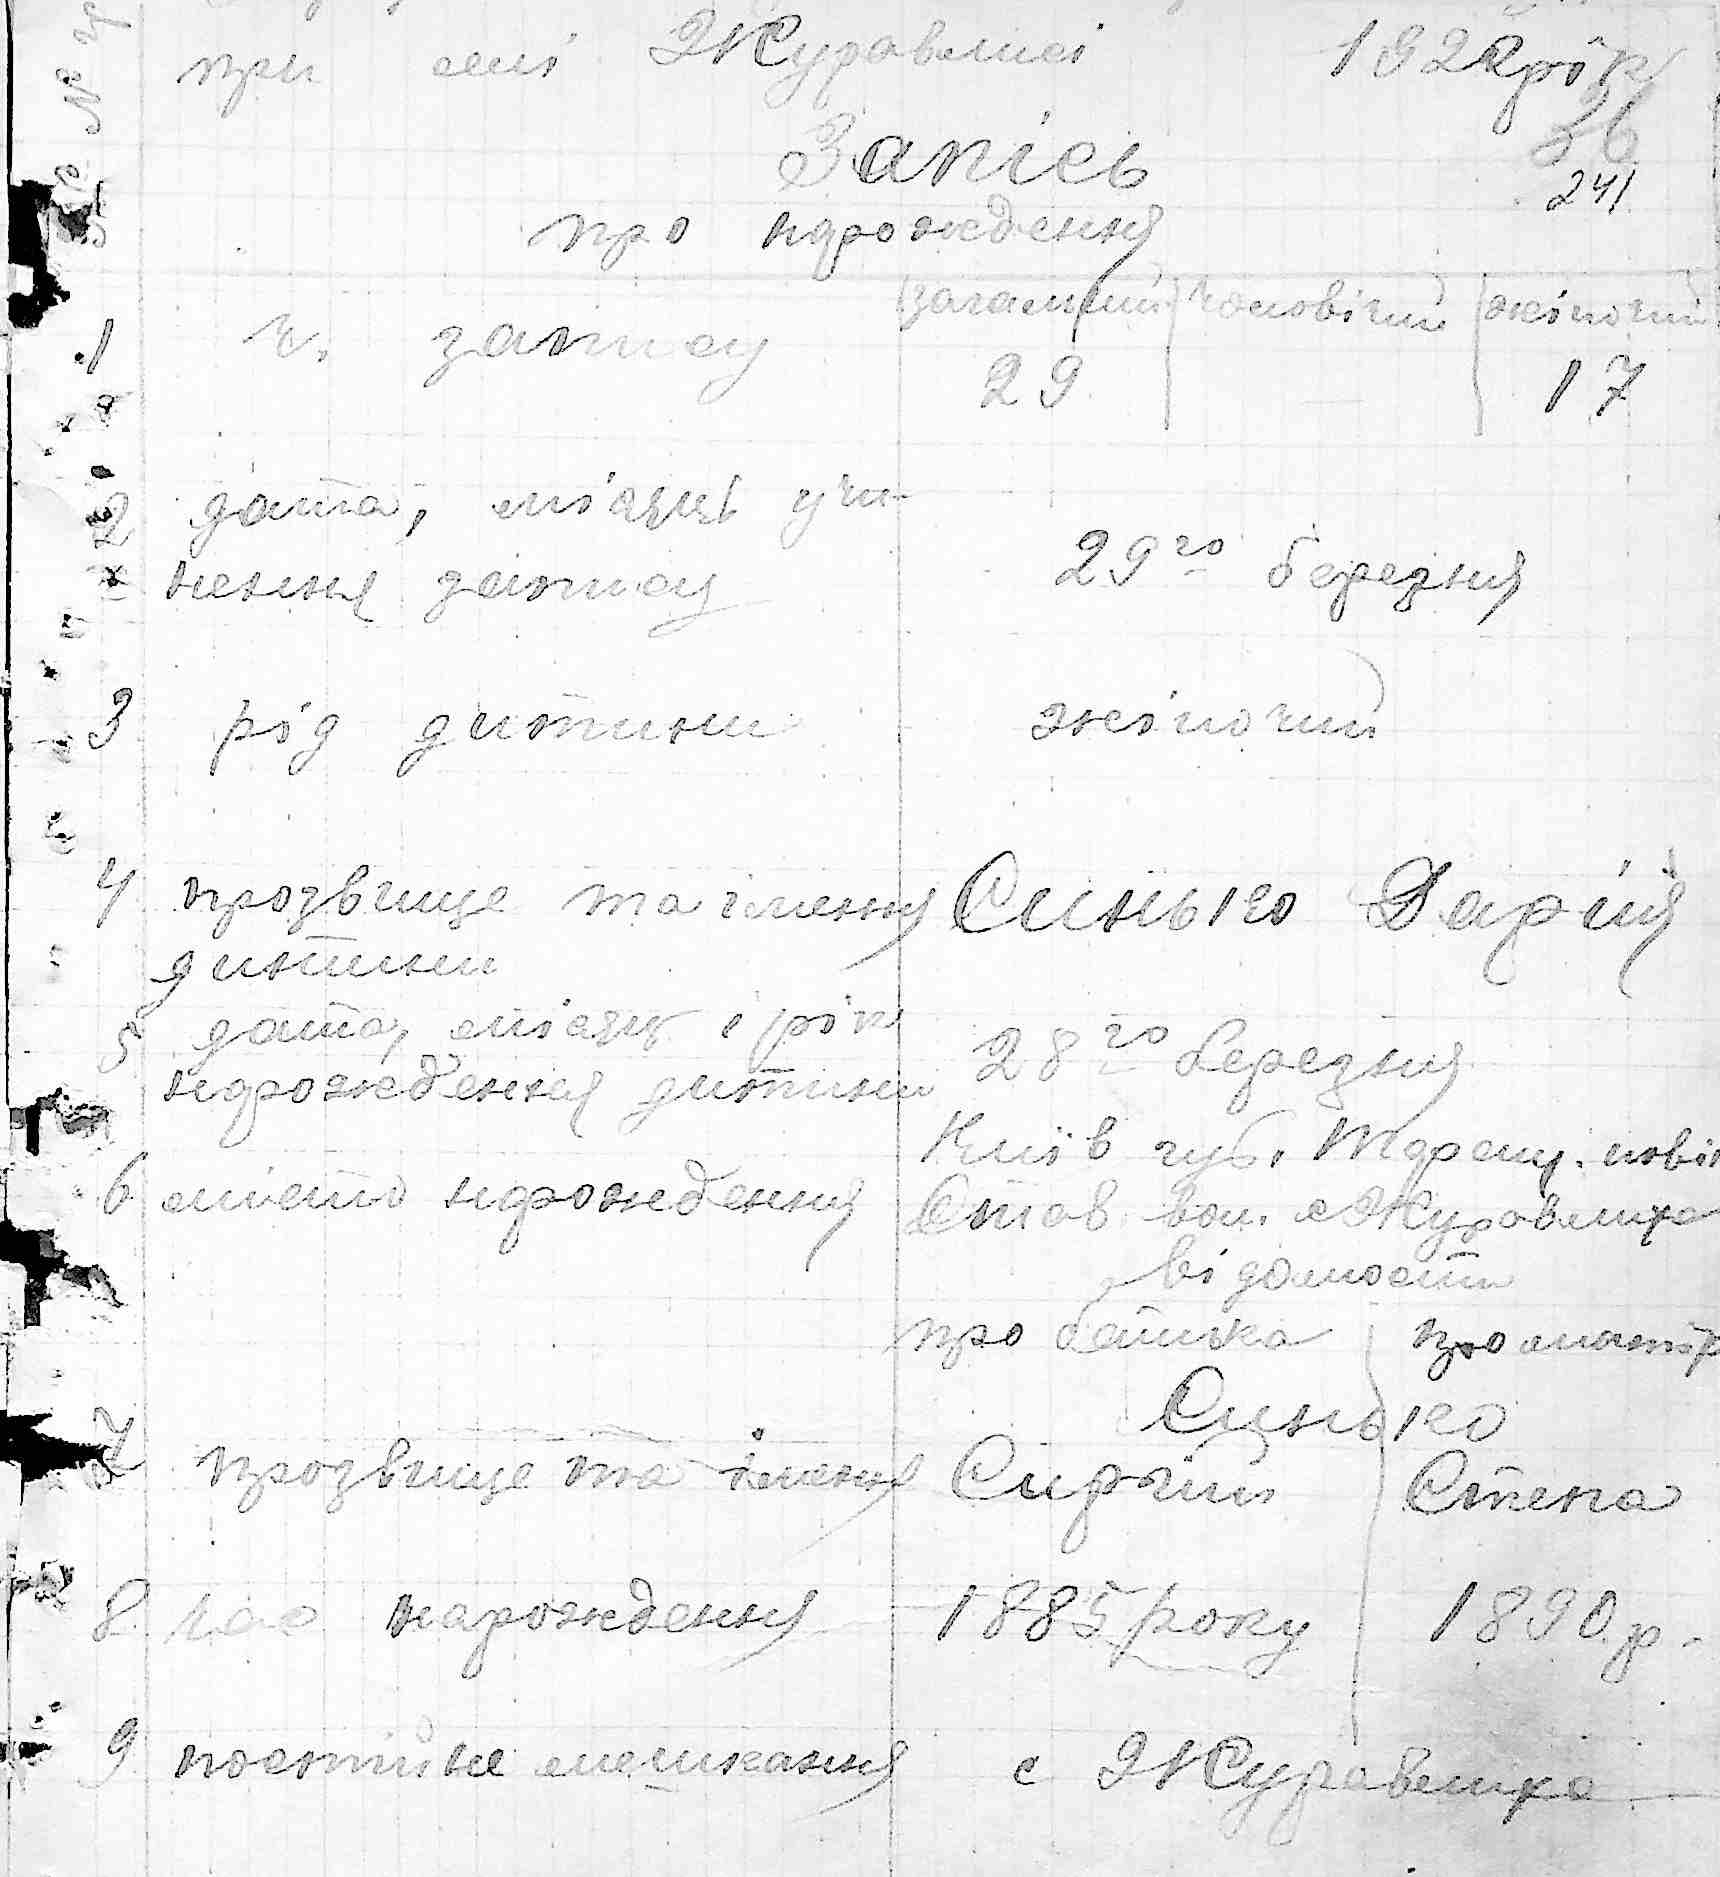 при селі Журавлисі 1922 рік
36
241
Запісь
про нарождення
загальний чоловічий жіночий
1 ч. запису 29 17
2 дата, місяць учи-
нення запису 29го березня
3 рід дитини жіночий
4 прозвище та імення Синько Дарія
дитини
5 дата, місяць і рік
нарождення дитини 28го березня
Київ губ. Таращ. повіт
6 місто нарождення Став. вол. с Журавлиха
відомости
про батька про матір
Синько
7 прозвище та імення Сиргій Степа
8 час нарождення 1885 року 1890 р.
9 постійне мешкання с Журавлиха